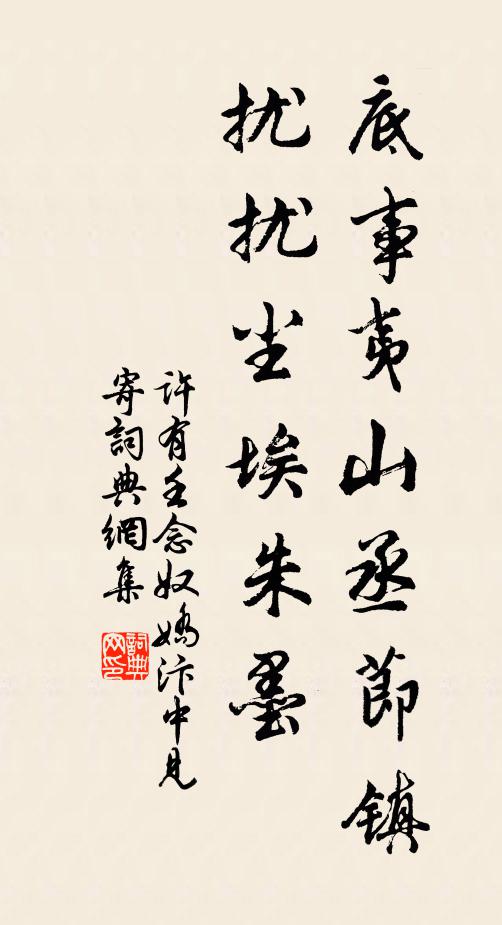 底事夷山丞莭鎮
扰扰尘埃朱墨
许有壬念奴嬌汴中見
寄詞典網集
詞典网印